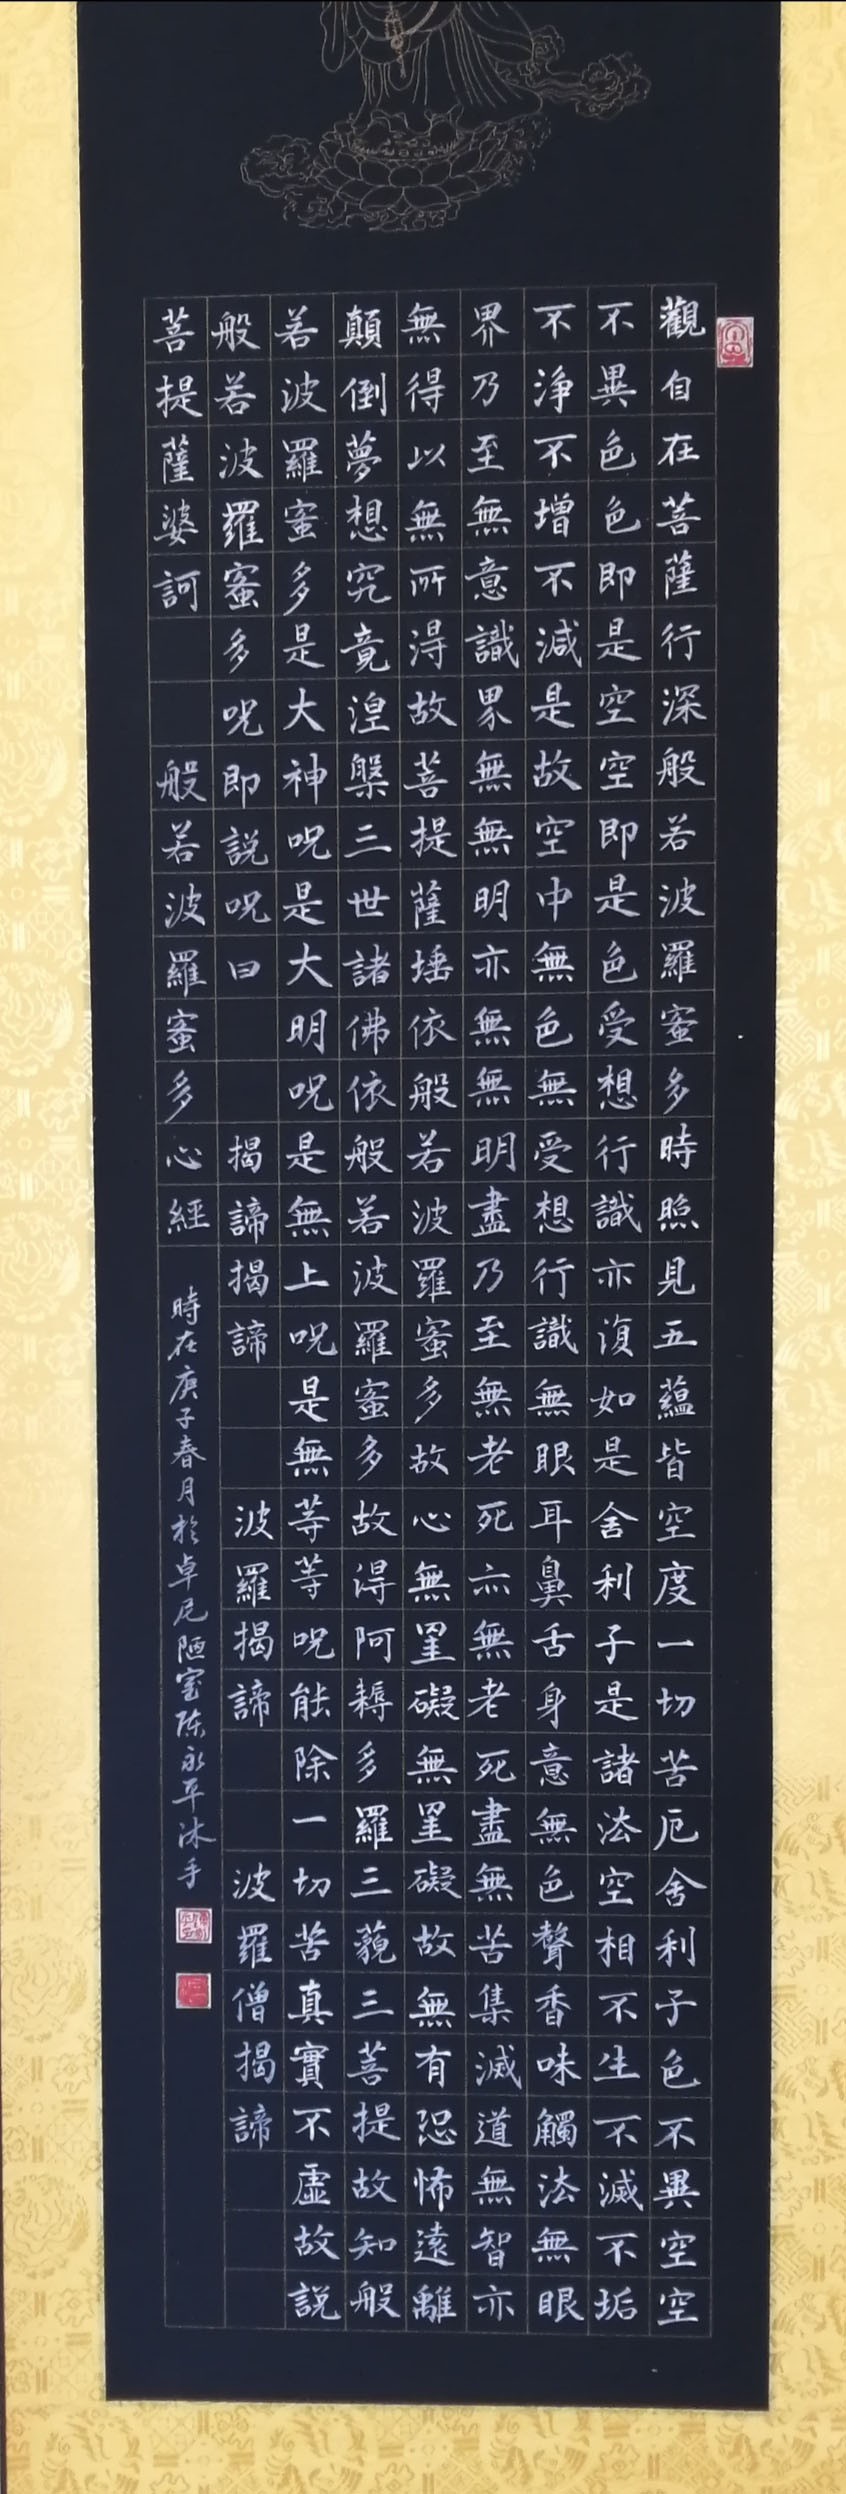 觀自在菩薩行深般若波羅蜜多時照見五蘊皆空度一切苦厄舍利子色不異空空
不異色色即是空空即是色受想行識亦復如是舍利子是諸法空相不生不滅不垢
不淨不增不減是故空中無色無受想行識無眼耳鼻舌身意無色聲香味觸法無眼
界乃至無意識界無無明亦無無明盡乃至無老死亦無老死盡無苦集滅道無智亦
無得以無所得故菩提薩埵依般若波羅蜜多故心無罣礙無罣礙故無有恐怖遠離
顛倒夢想究竟涅槃三世諸佛依般若波羅蜜多故得阿耨多羅三藐三菩提故知般
若波羅蜜多是大神呪是大明呪是無上呪是無等等呪能除一切苦真實不虛故說
般若波羅蜜多呪即說呪曰 揭諦揭諦 波羅揭諦 波羅僧揭諦
菩提薩婆訶 般若波羅蜜多心經 時在庚子春月於卓尼陋室陈永平沐手